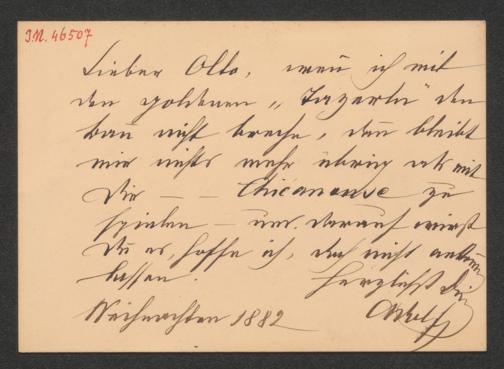 I.N. 46507
Lieber Otto, wenn ich mit
den goldenen „Tazerln" den
Bann nicht breche, dann bleibt
mir nichts mehr übrig als mit
Dir — — Chicaneuse zu
spielen — und darauf wirst
Du es, hoffe ich, doch nicht ankommen
lassen. Herzlichst Dein
Weihnachten 1882